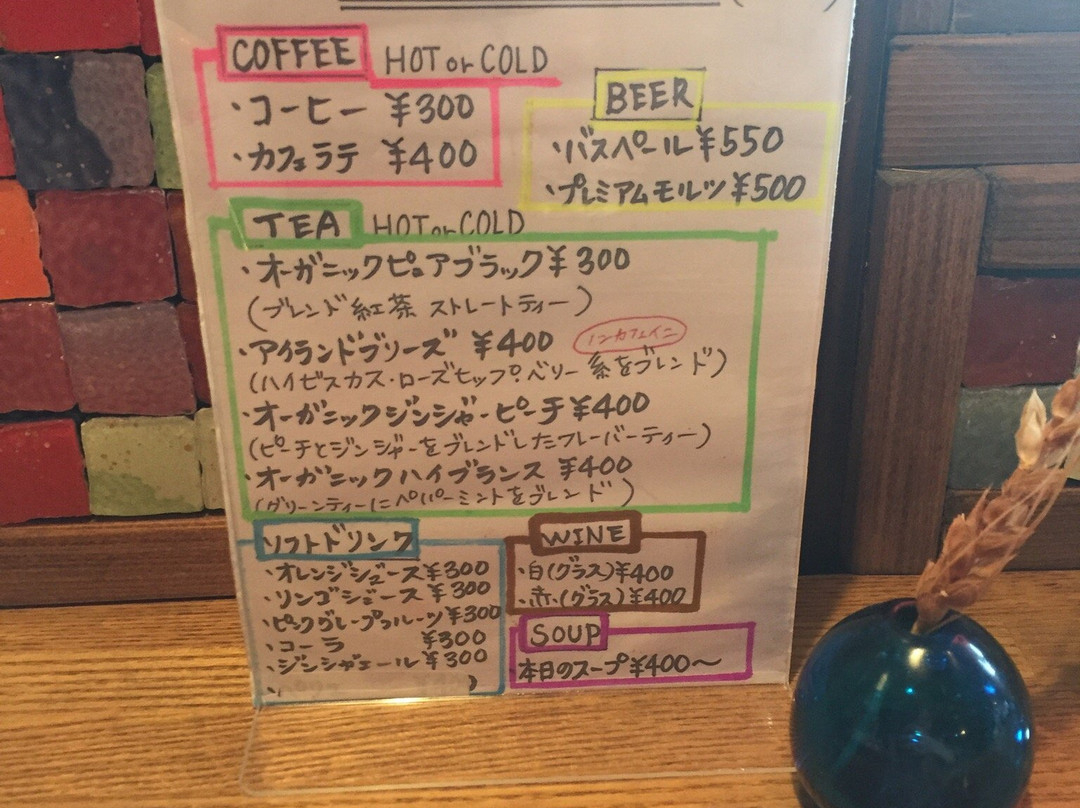 COFFEE HOT or COLD
・コーヒー ¥300
・カフェラテ ¥400
BEER
・バスペール¥550
・プレミアムモルツ¥500
TEA HOT or COLD
・オーガニックピュアブラック¥300
(ブレンド紅茶 ストレートティー)
・アイランドブリーズ ¥400 ノンカフェイン
(ハイビスカス・ローズヒップ・ベリー系をブレンド)
・オーガニックジンジャーピーチ¥400
(ピーチとジンジャーをブレンドしたフレーバーティー)
・オーガニックハイブランス ¥400
(グリーンティーにペパーミントをブレンド)
ソフトドリンク
・オレンジジュース¥300
・リンゴジュース¥300
・ピンクグレープフルーツ¥300
・コーラ ¥300
・ジンジャエール¥300
WINE
・白(グラス)¥400
・赤(グラス)¥400
SOUP
・本日のスープ¥400〜